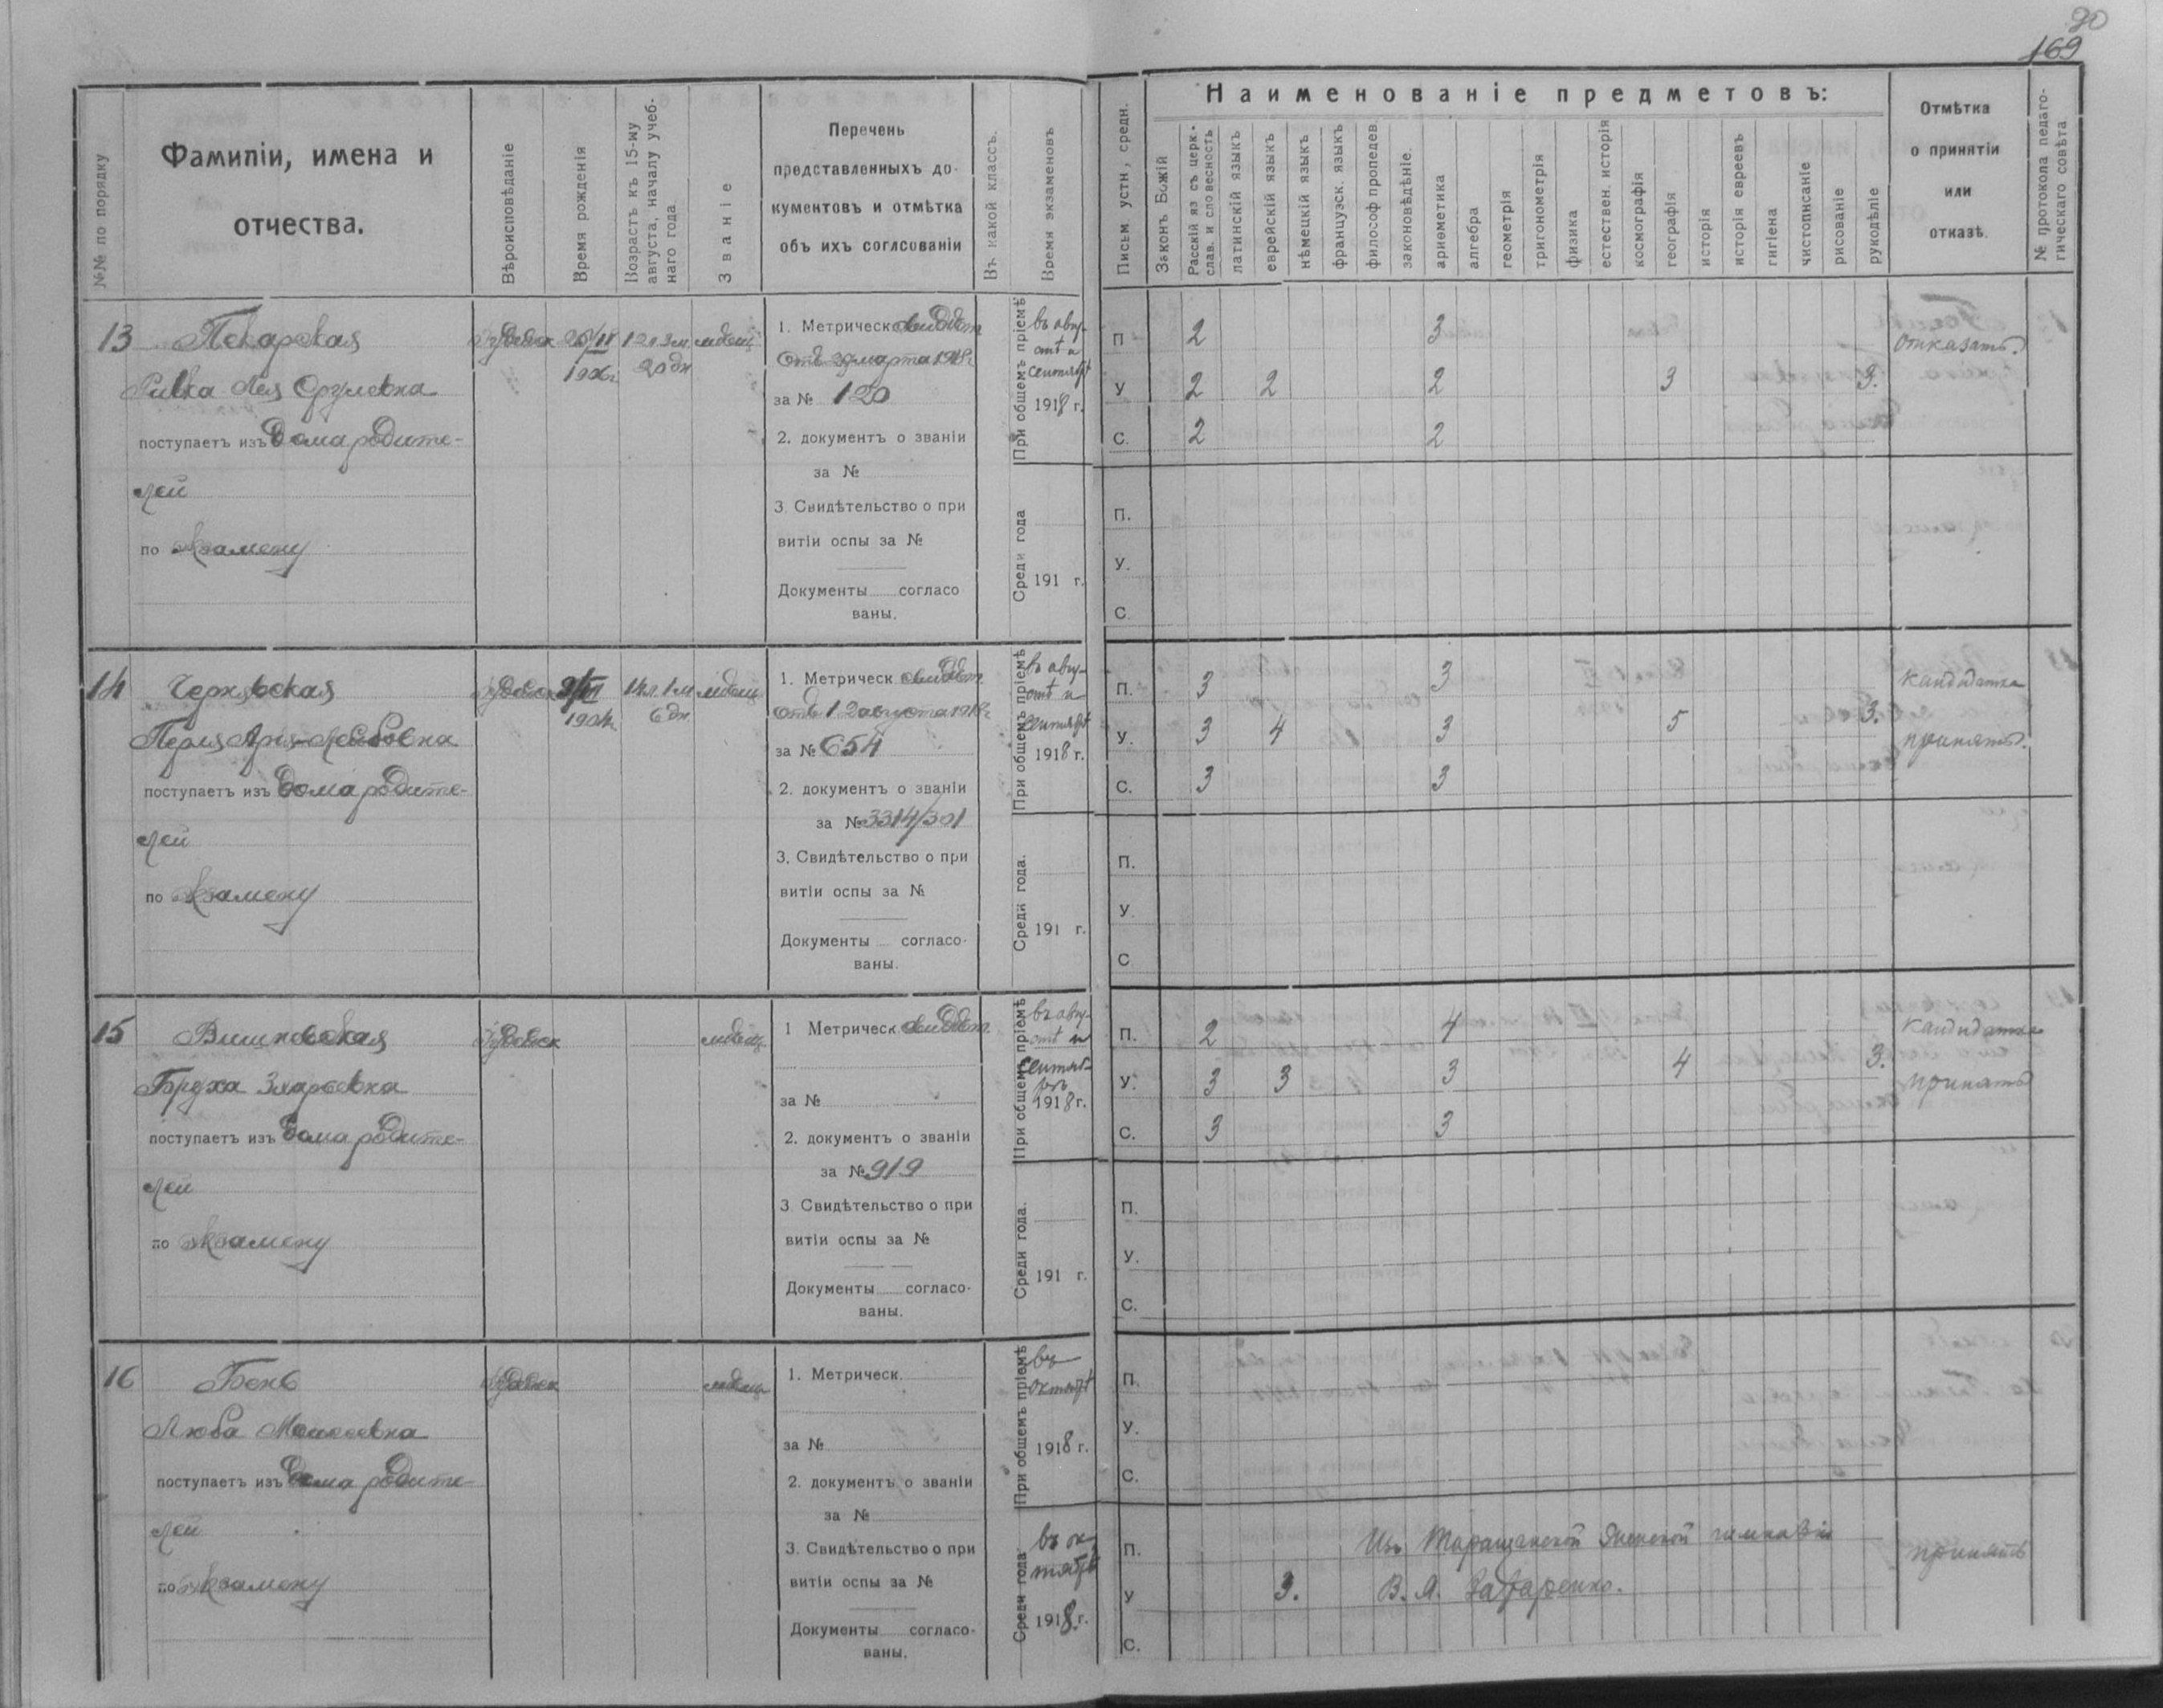 90
169
№№ по порядку
Фамиліи, имена и
отчества.
Вѣроисповѣданіе
Время рожденія
Возрастъ къ 15-му
августа, началу учеб-
наго года
Званіе
Перечень
представленныхъ до-
кументовъ и отмѣтка
объ ихъ согласованіи
Въ какой классъ.
Время экзаменовъ
Письм устн, средн.
Наименованіе предметовъ:
Законъ Божій
Расскій яз съ церк-
слав. и словесность
латинскій языкъ
еврейскій языкъ
нѣмецкій языкъ
французск. языкъ
философ пропедев
законовѣдѣніе.
ариѳметика
алгебра
геометрія
тригонометрія
физика
естествен. исторія
космографія
географія
исторія
исторія евреевъ
гигіена
чистописаніе
рисованіе
рукодѣліе
Отмѣтка
о принятіи
или
отказѣ.
№ протокола педаго-
гическаго совѣта
13 Пекарская
Ривка Лея Срулевна
поступаетъ изъ дома родите-
лей
по экзамену
1906 г.
12 л. 3 м.
20 дн
1. Метрическ свидѣт
отъ марта 1918 г
за № 120
2. документъ о званіи
за №
3. Свидѣтельство о при
витіи оспы за №
Документы согласо
ваны.
При общемъ пріемѣ
въ авгу-
стѣ и
сентябрѣ
1918 г.
Среди года
191 г.
П 2 3
У 2 2 2 3 3.
С. 2 2
отказать.
П.
У.
С.
14 Черняевская
Перля Арія-Лейбовна
поступаетъ изъ дома родите-
лей
по экзамену
1904 г.
14 л. 1 м
6 дн
1. Метрическ свидѣт
отъ 12 августа 1918 г
за № 654
2. документъ о званіи
за № 3314/301
3. Свидѣтельство о при
витіи оспы за №
Документы согласо-
ваны.
При общемъ пріемѣ
въ авгу-
стѣ и
сентябрѣ
1918 г.
Среди года.
191 г.
П. 3 3
У. 3 4 3 5 3.
С. 3 3
кандидатка
принять.
П.
У.
С
15 Вишневская
Бруха
поступаетъ изъ дома родите-
лей
по экзамену
1 Метрическ свидѣт
за №
2. документъ о званіи
за № 919
3. Свидѣтельство о при
витіи оспы за №
Документы согласо-
ваны.
При общемъ пріемѣ
въ авгу-
стѣ и
сентяб-
рѣ
1918 г.
Среди года.
191 г.
П. 2 4
У. 3 3 3 4 3.
С. 3 3
кандидатка
принять
П.
У.
С.
16 Бенъ
Люба Моисеевна
поступаетъ изъ дома родите-
лей
по экзамену
1. Метрическ.
за №
2. документъ о званіи
за №
3. Свидѣтельство о при
витіи оспы за №
Документы согласо-
ваны.
При общемъ пріемѣ
въ
октябрѣ
1918 г.
Среди года
въ ок-
тябрѣ
1918 г.
П.
У.
С.
П. Изъ Таращанской женской гимназіи
У 3. В. А. Захаренко.
С.
принять